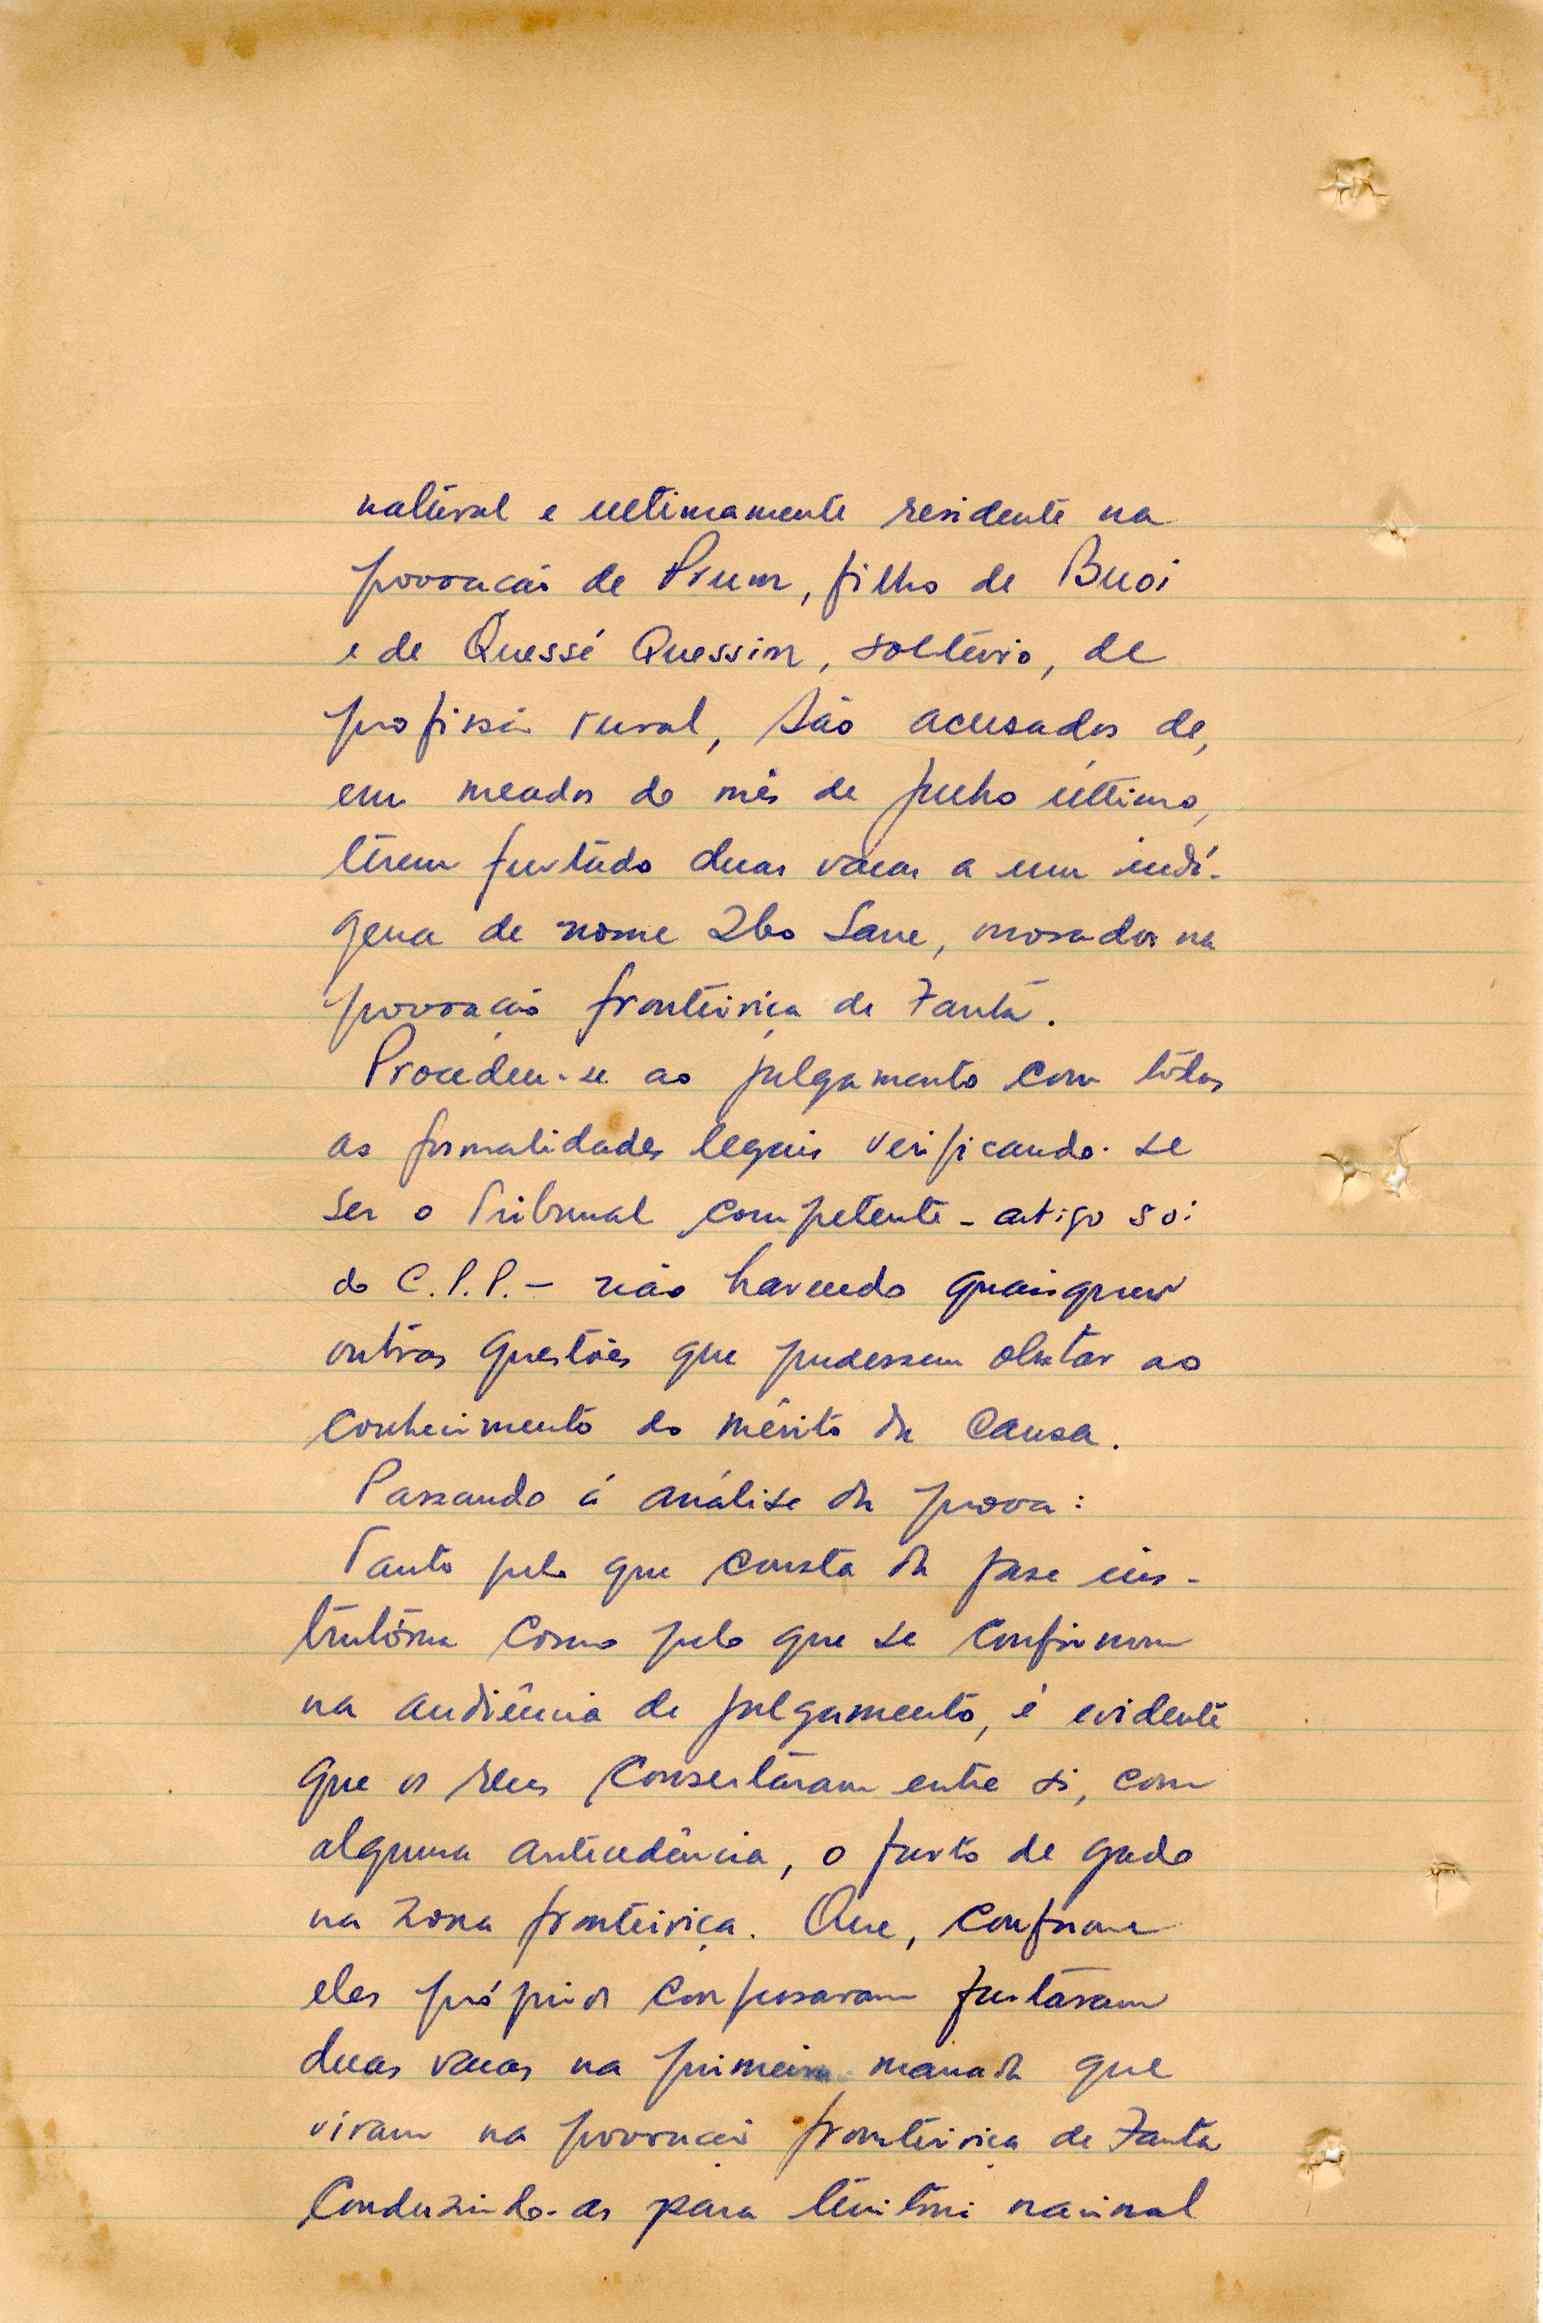 natural e ultimamente residente na
povoação de Prum, filho de Buoi
e de Quessé Quessim, solteiro, de
profissão rural, são acusados de,
em meados do mês de Julho último,
terem furtado duas vacas a um indí-
gena de nome Ibo Sane, morador na
povoação fronteiriça de Zanta.
Procedeu-se ao julgamento com tôdas
as formalidades legais verificando-se
ser o Tribunal competente - artigo
do C.P.P. - não havendo quaisquer
outras questões que pudessem obstar ao
conhecimento do mérito da causa.
Passando á análise da prova:
Tanto pelo que consta da fase ins-
trutória como pelo que se confirmou
na audiência de julgamento, é evidente
que os réus consertaram entre si, com
alguma antecedência, o furto de gado
na zona fronteiriça. Que, conforme
eles próprios confessaram furtaram
duas vacas na primeira manada que
viram na povoação fronteiriça de Zanta
conduzindo-as para território nacional